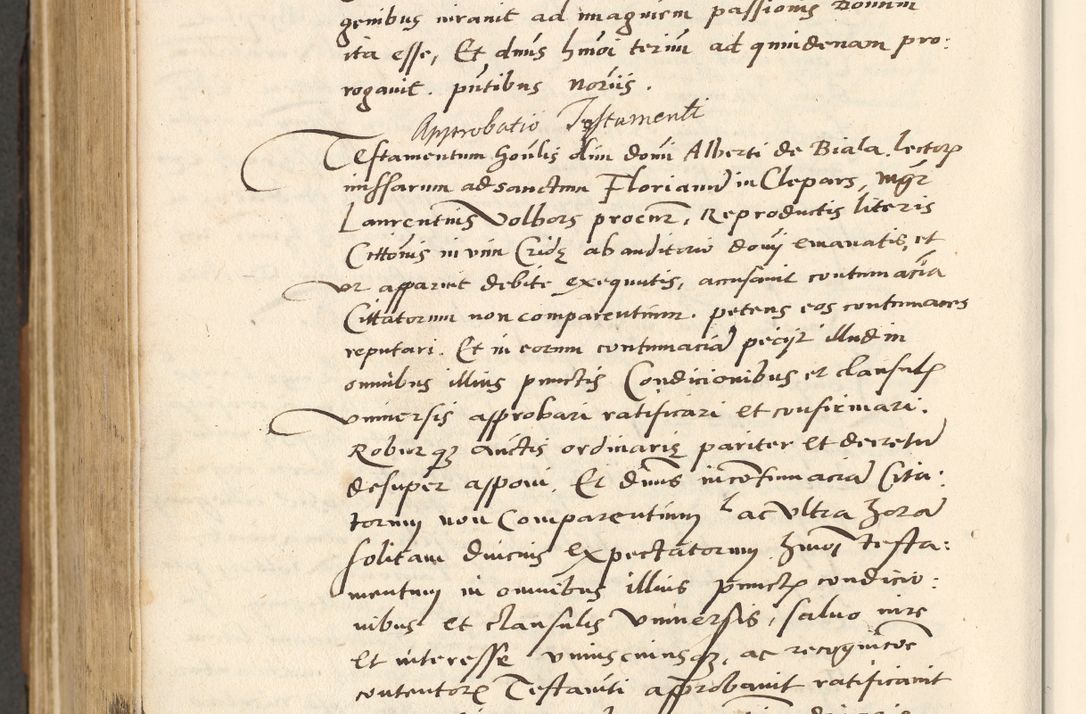 genibus iuravit ad imaginem passionis Domini
ita esse, Et dnus hmoi termi ad quindenam pro:
rogavit. pntibus noriis.
Approbatio Testamenti
Testamentum honlis olim domi Alberti de Biala, lectoris
missarum ad sanctum Florianum in Clepars, Mgr
Laurentius Volbors procur, Reproductis literis
Cittonis in vim Cride ab auditorio dominij emanatis, et
ut apparuit debite exequutis, accusavit contumacia
Cittatorum non comparentium. petens eos contumaces
reputari. Et in eorum contumaciam pecijt illud in
omnibus illius punctis Condicionibus et clausulis
universis approbari ratificari et confirmari.
Roburque auctis ordinarie pariter et decretum
desuper apponi. Et dnus in contumaciam Cita:
torum non Comparentium ac ultra horam
solitam diucius expectatorum hmoi testa:
mentum in omnibus illius punctis condicio:
nibus et clausulis Universis, salvo iure
Et interesse uniuscuiusque, ac recognitoe
contentor Testamti approbavit ratificavit